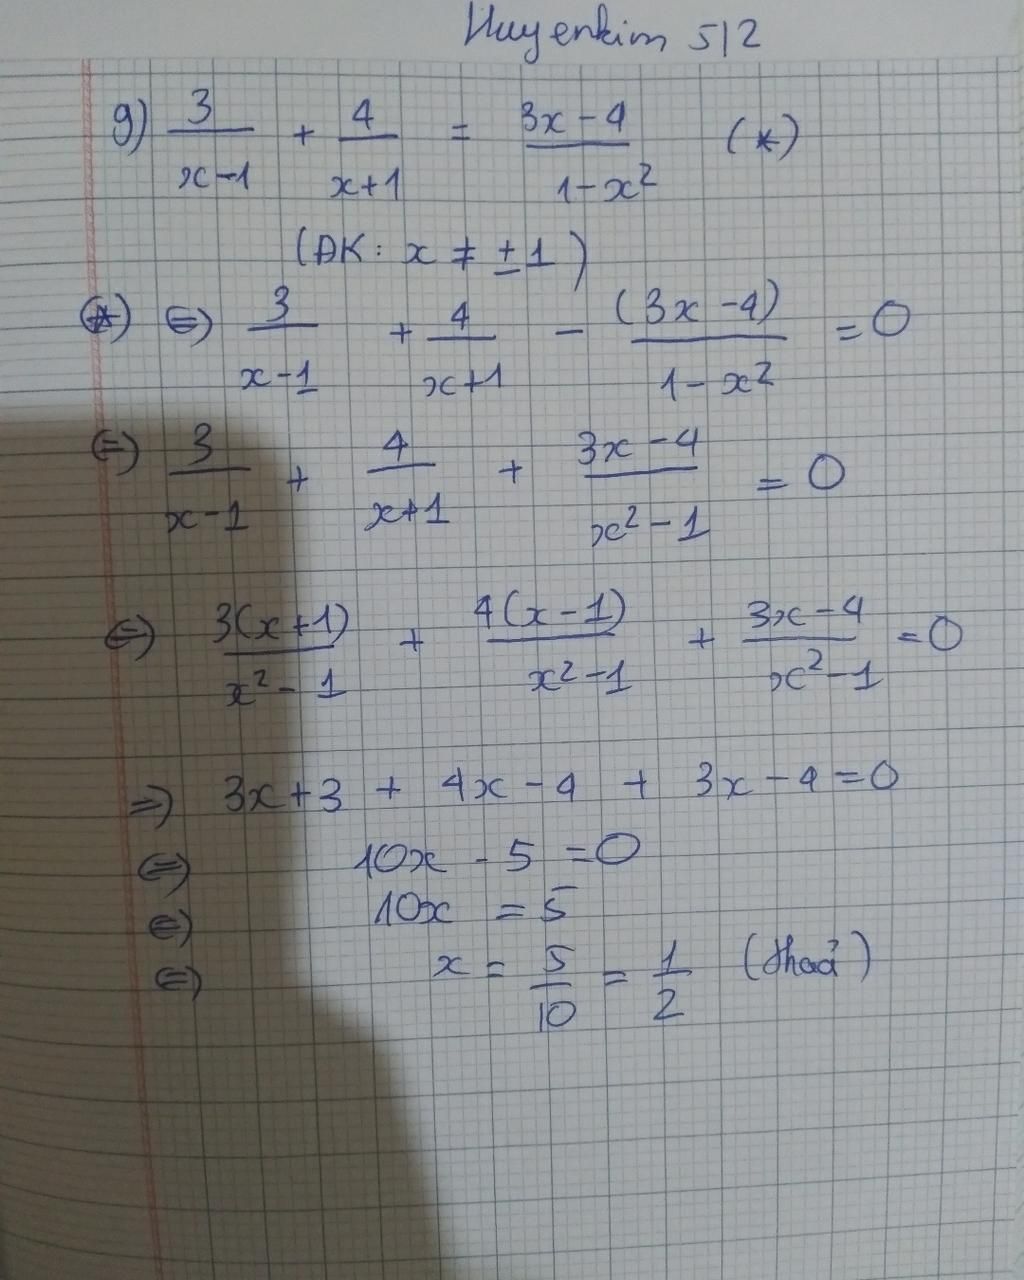 Huyenkim 5/2
g) 3/(x-1) + 4/(x+1) = (3x-4)/(1-x²) (*)
(ĐK: x ≠ ±1)
(*) ⇔ 3/(x-1) + 4/(x+1) - (3x-4)/(1-x²) = 0
⇔ 3/(x-1) + 4/(x+1) + (3x-4)/(x²-1) = 0
⇔ 3(x+1)/(x²-1) + 4(x-1)/(x²-1) + (3x-4)/(x²-1) = 0
⇒ 3x+3 + 4x-4 + 3x-4 = 0
⇔ 10x - 5 = 0
⇔ 10x = 5
⇔ x = 5/10 = 1/2 (thoả)